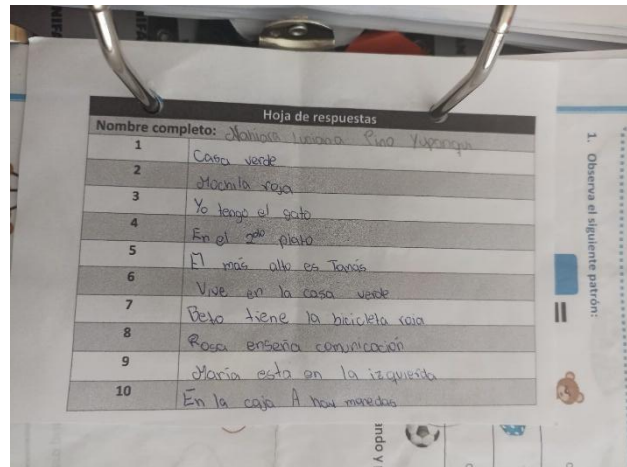 Hoja de respuestas
Nombre completo: Luciana Pino Yupanqui
1 Casa verde
2 Mochila roja
3 Yo tengo el gato
4 En el 2do plato
5 El más alto es Tomás
6 Vive en la casa verde
7 Beto tiene la bicicleta roja
8 Rosa enseña comunicación
9 María esta en la izquierda
10 En la caja A hay monedas
1. Observa el siguiente patrón: